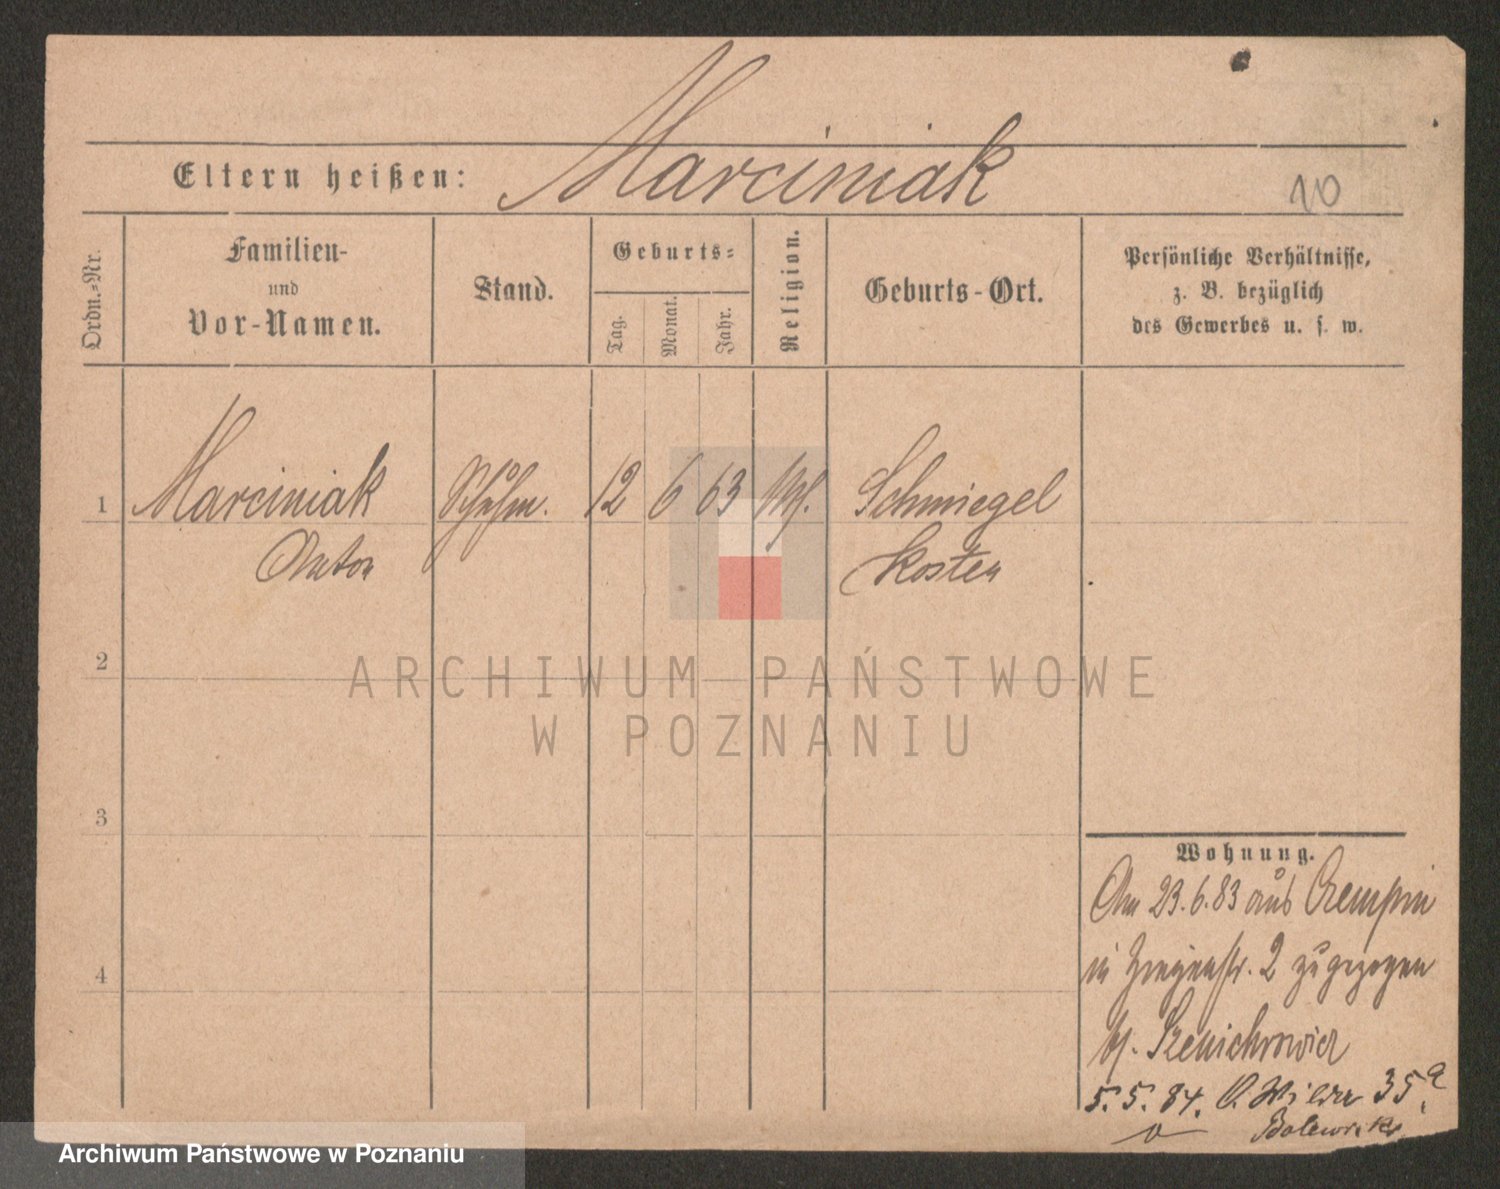 Marciniak
Eltern heißen:
10
Ordn.-Nr.
Familien-
und
Vor-Namen.
Stand.
Geburts-
Tag.
Monat.
Jahr.
Religion.
Geburts-Ort.
Persönliche Verhältnisse,
z. B. bezüglich
des Gewerbes u. s. w.
1
Marciniak
Anton
12
6
63
Schmiegel
Kosten
2
3
4
ARCHIWUM PAŃSTWOWE
W POZNANIU
Wohnung.
Am 23.6.83 aus Czempin
in 2 zugezogen
5.5.84. O. Wilda 35a
Archiwum Państwowe w Poznaniu